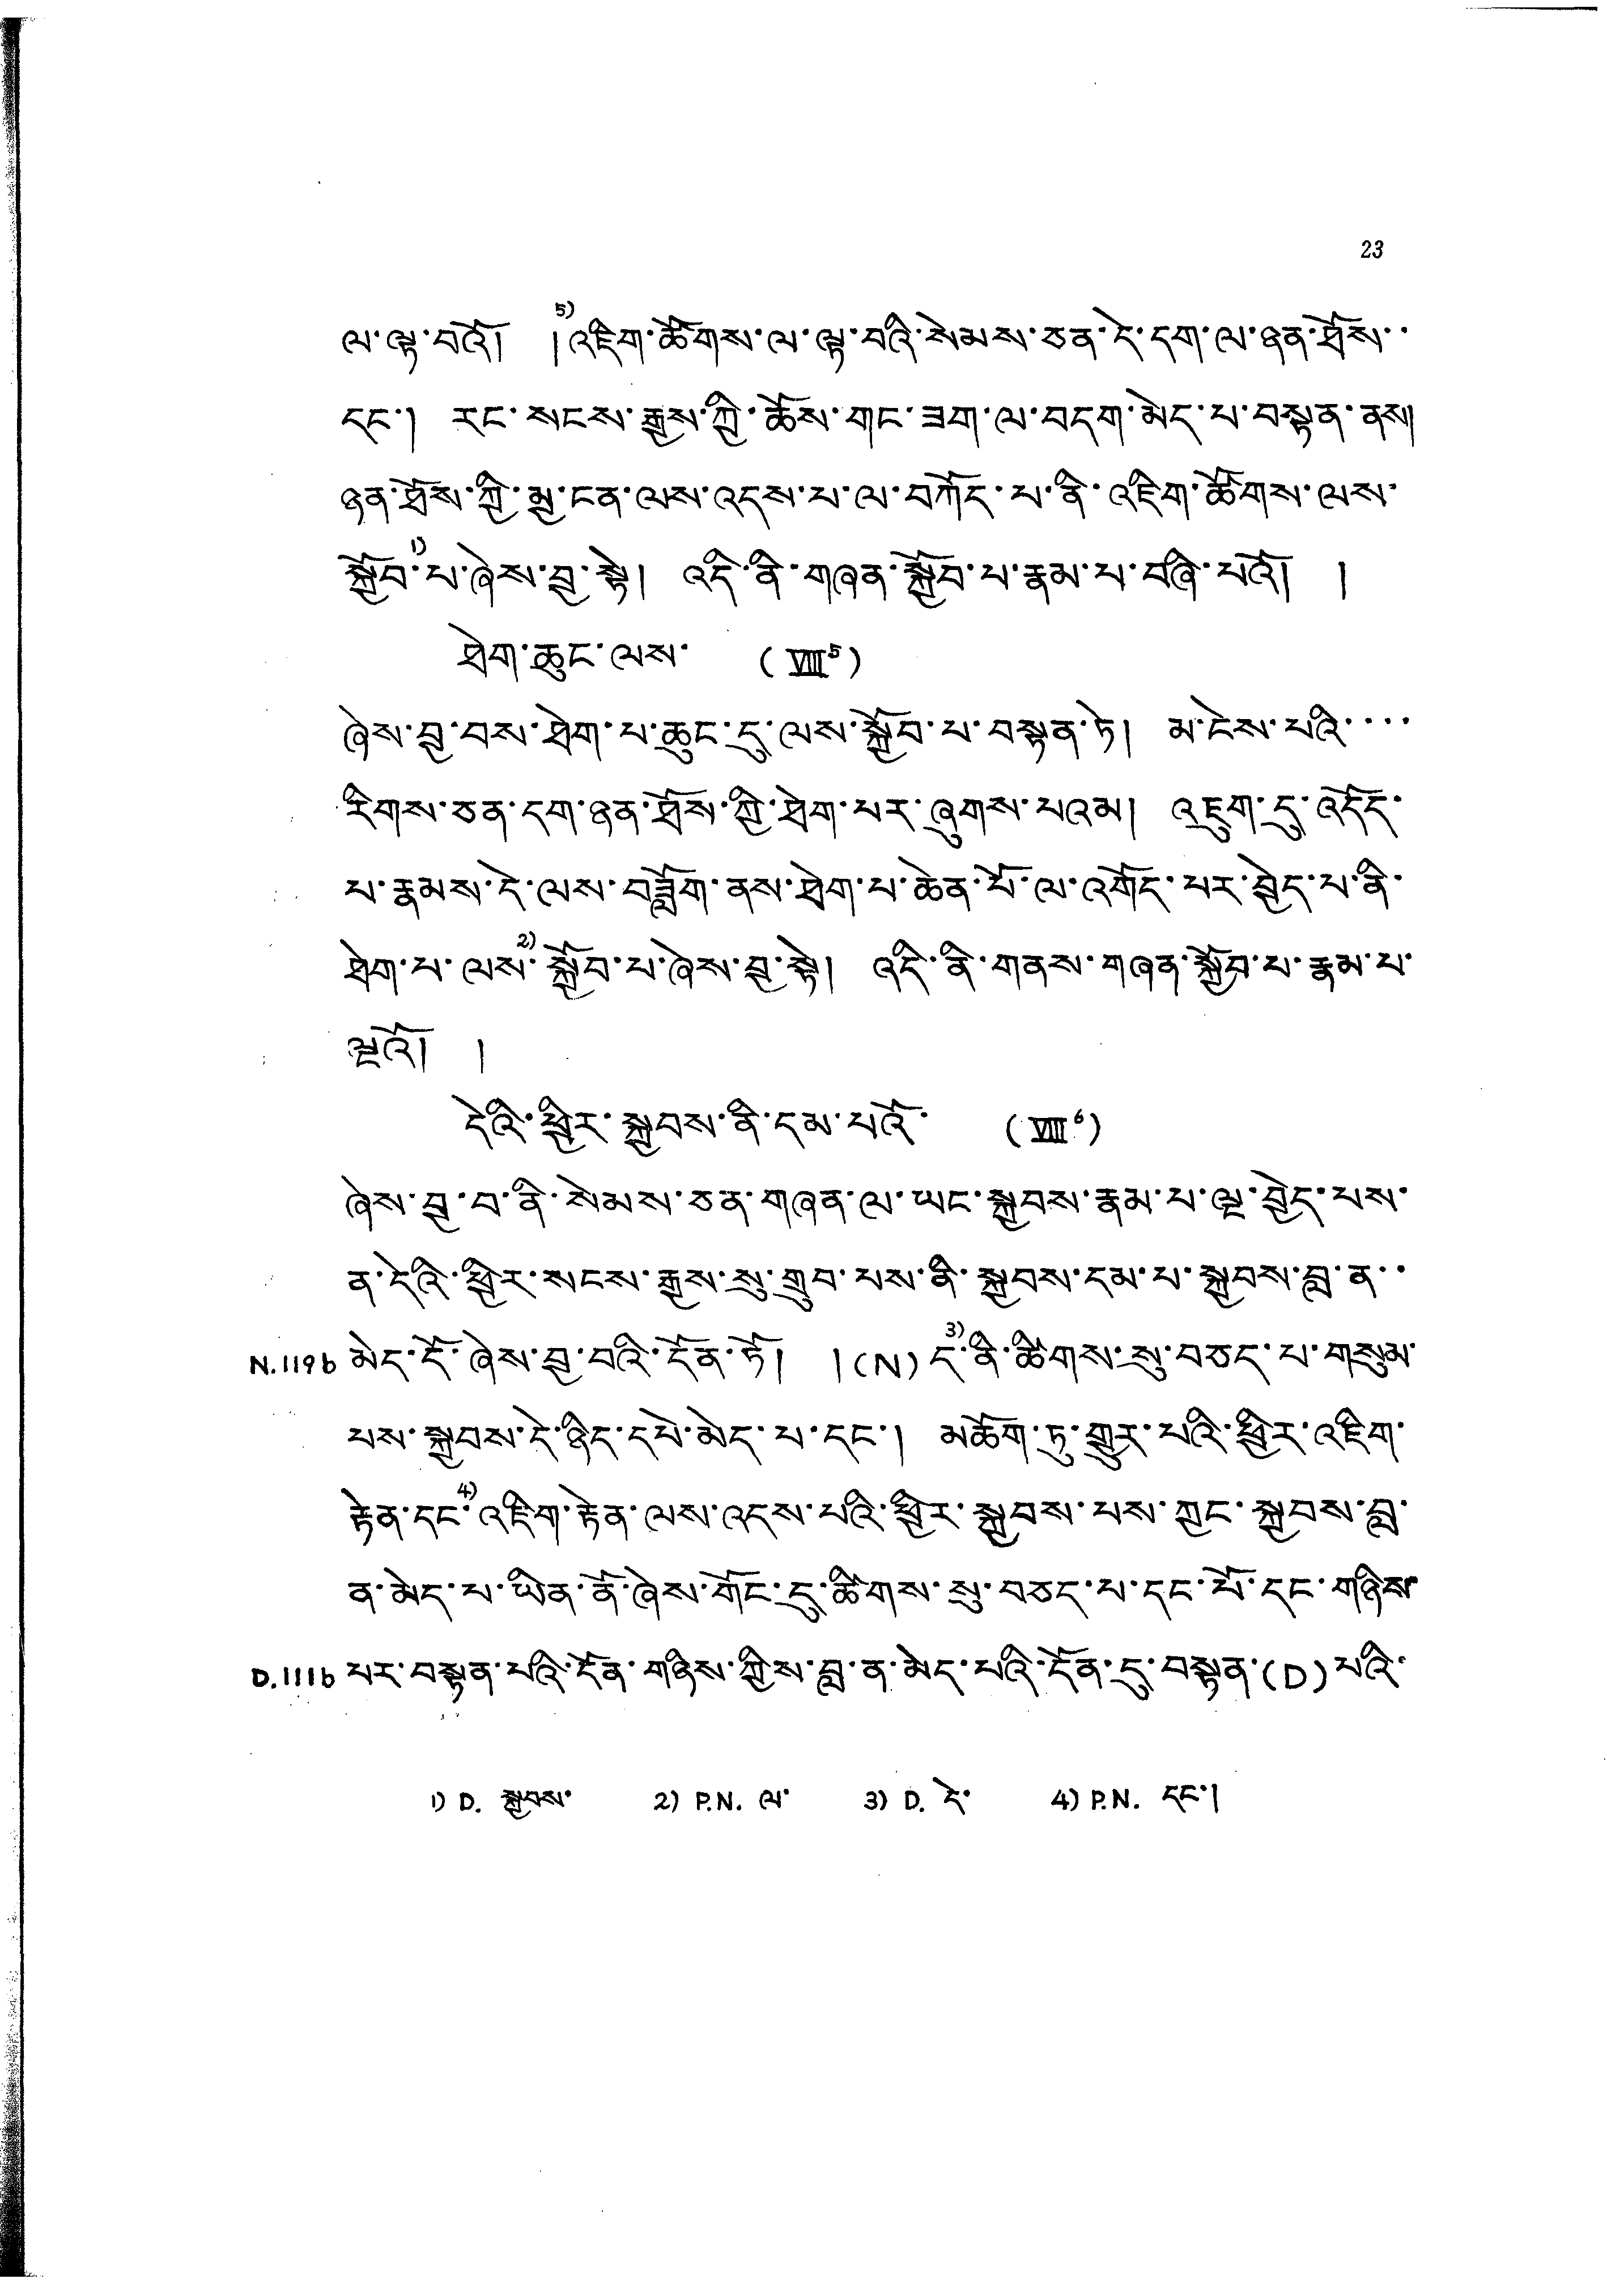 23
ལ་ལྟ་བའོ། །⁵⁾འཇིག་ཚོགས་ལ་ལྟ་བའི་སེམས་ཅན་དེ་དག་ལ་ཉན་ཐོས་་
དང་། རང་སངས་རྒྱས་ཀྱི་ཆོས་གང་ཟག་ལ་བདག་མེད་པ་བསྟན་ནས།
ཉན་ཐོས་ཀྱི་མྱ་ངན་ལས་འདས་པ་ལ་བཀོད་པ་ནི་འཇིག་ཚོགས་ལས་
སྐྱོབ་¹⁾པ་ཞེས་བྱ་སྟེ། འདི་ནི་གཞན་སྐྱོབ་པ་རྣམ་པ་བཞི་པའོ། །
ཐེག་ཆུང་ལས་ (VIII⁵)
ཞེས་བྱ་བས་ཐེག་པ་ཆུང་ངུ་ལས་སྐྱོབ་པ་བསྟན་ཏེ། མ་ངེས་པའི་་་་
རིགས་ཅན་དག་ཉན་ཐོས་ཀྱི་ཐེག་པར་ཞུགས་པའམ། འཇུག་ཏུ་འདོད་
པ་རྣམས་དེ་ལས་བཟློག་ནས་ཐེག་པ་ཆེན་པོ་ལ་འགོད་པར་བྱེད་པ་ནི་
ཐེག་པ་ལས་²⁾སྐྱོབ་པ་ཞེས་བྱ་སྟེ། འདི་ནི་གནས་གཞན་སྐྱོབ་པ་རྣམ་པ་
ལྔའོ། །
དེའི་ཕྱིར་སྐྱབས་ནི་དམ་པའོ་ (VIII⁶)
ཞེས་བྱ་བ་ནི་སེམས་ཅན་གཞན་ལ་ཡང་སྐྱབས་རྣམ་པ་ལྔ་བྱེད་པས་
ན་དེའི་ཕྱིར་སངས་རྒྱས་སུ་གྲུབ་པས་ནི་སྐྱབས་དམ་པ་སྐྱབས་བླ་ན་་
N.119b མེད་དོ་ཞེས་བྱ་བའི་དོན་ཏོ། །(N) ད་³⁾ནི་ཚིགས་སུ་བཅད་པ་གསུམ་
པས་སྐྱབས་དེ་ཉིད་དཔེ་མེད་པ་དང་། མཆོག་ཏུ་གྱུར་པའི་ཕྱིར་འཇིག་
རྟེན་དང་⁴⁾འཇིག་རྟེན་ལས་འདས་པའི་ཕྱིར་སྐྱབས་པས་ཀྱང་སྐྱབས་བླ་
ན་མེད་པ་ཡིན་ནོ་ཞེས་གོང་དུ་ཚིགས་སུ་བཅད་པ་དང་པོ་དང་གཉིས་
D.111b པར་བསྟན་པའི་དོན་གཉིས་ཀྱིས་བླ་ན་མེད་པའི་དོན་དུ་བསྟན་(D) པའི་
1) D. སྐྱབས་ 2) P.N. ལ་ 3) D. དེ་ 4) P.N. དང་།